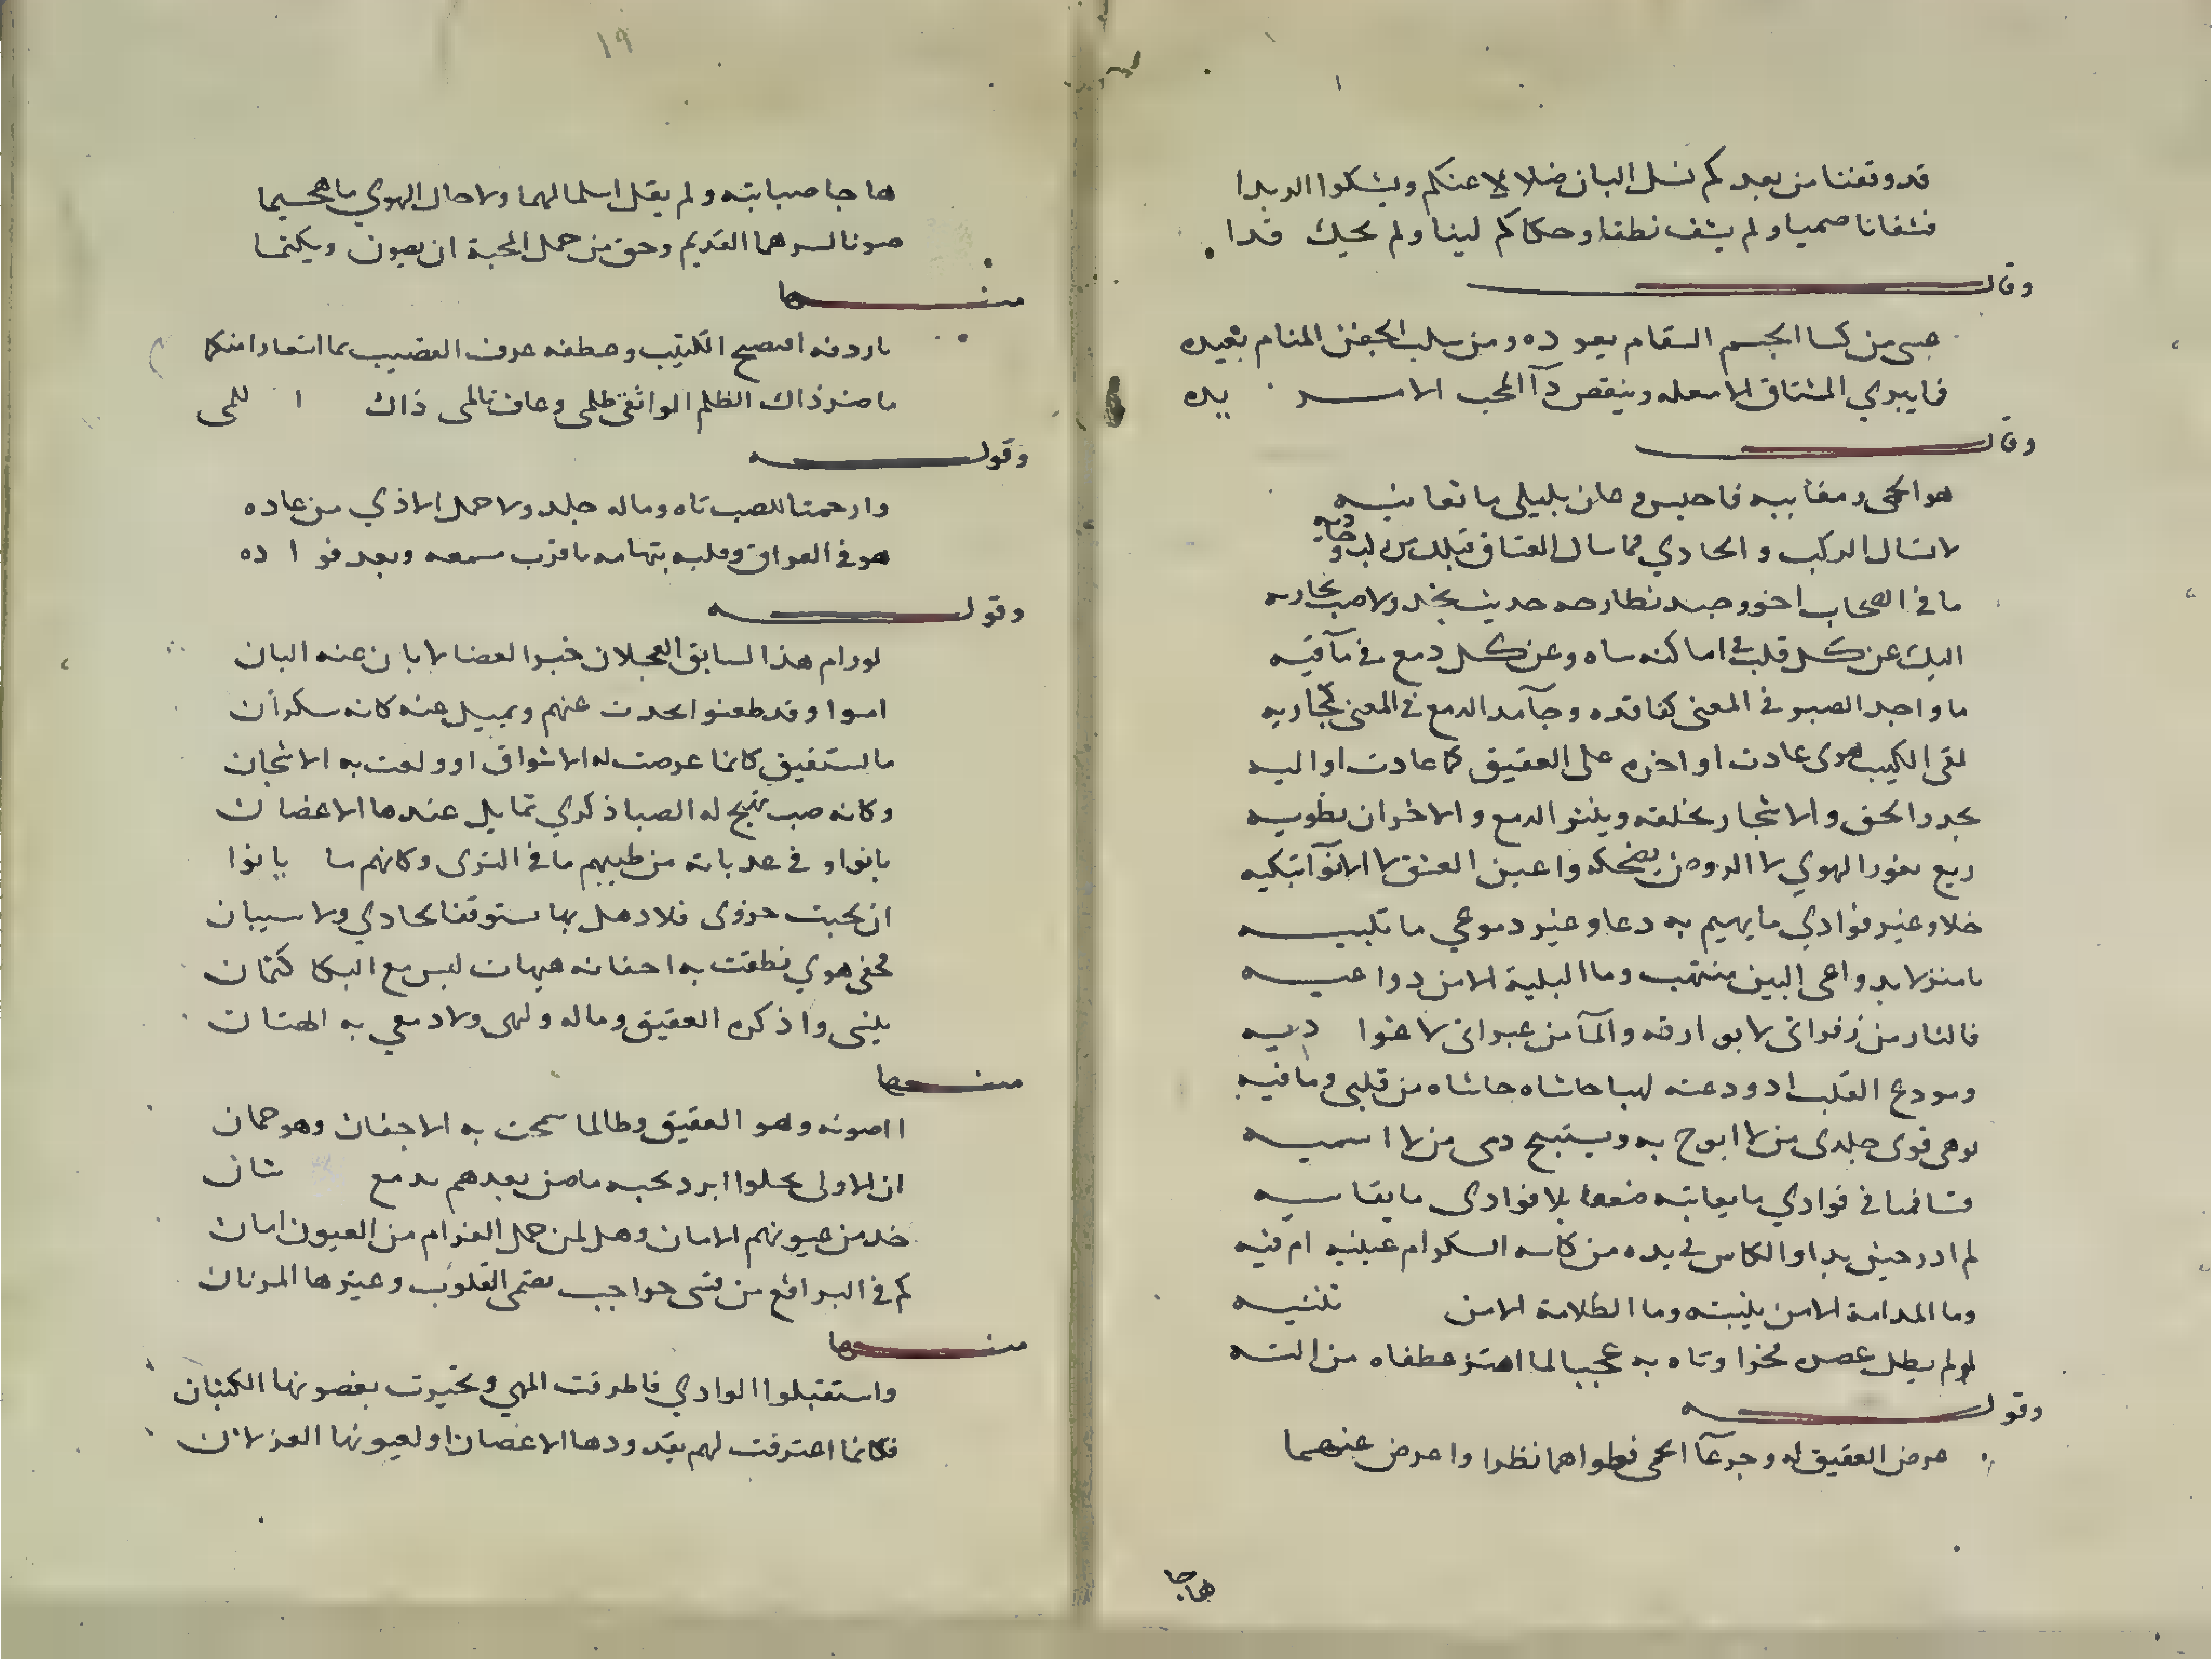 قد وقفنا من بعدكم نسل البان ضلالا عنكم ويشكوا الدبدا
فشفانا صميا ولم يشف نطقا وحكاكم لينا ولم يحيك قدا
وقال
عسى من كسا الجسم السقام يعوده ومن سلب الجفن المنام يعيده
فما يبري المشتاق الا معله وينقص دآ المحب الا مـ يده
وقال
هو الحمى ومغانيه فاحبس وعان بليلى ما تعانيه
لا تسال الركب والحادي فما سال العشاق قبلك عن ركب وحاديه
ما في الصحاب اخو وجد نطارحه حديث نجد ولا صب نجاريه
اليك عن كل قلب في اماكنه ساه وعن كل دمع في مآقيه
ما واجد الصبر في المعنى كفاقده وجآمد الدمع في المعنى كجاريه
لقى الكثيب هوى عادت اواخره على العقيق كما عادت اواليه
يجدد الحق والاشجار تخلقه وينثر الدمع والاخزان تطويه
ربع نغور الهوي لا الروض يضحكه واعين العشق لا الانوآ تبكيه
خلا وغير فوادي ما يهيم به دعا وغير دموعي ما تلبيـه
يا منزلا بدواعي البين منتهب وما البلية الا من دواعيـه
فالنار من زفراتي لا بوارقه والمآ من عبراتي لا غوا ديه
ومودع القلب اذ ودعته لهبا حاشاه حاشاه من قلبي وما فيه
يوهي قوى جلدي من لا ابوح به ويستبيح دمى من لا اسميـه
وتسا فما في فوادي ما يعانيه ضعفا بلا فوادى ما يقاسيه
لم ادر حين بدا والكاس في يده من كاسه السكر ام عينيه ام فيه
وما المدامة الا من يثنيته وما الظلامة الا من تلثنيـه
لو لم يطل عصره فخرا وتاه به عجبا لما اهتز عطفاه من التيه
وقوله
عرض العقيق له وجرعآ الحمى فطواهما نظرا واعرض عنهما
هاجا
١٩
هاجا صبابته ولم يقل اسلما لهما ولا حال الهوي ما هجيما
صونا لسرهما القديم وحق من حمل المحبة ان يصون ويكتما
منـها
يا ردفه افصح الكثيب وعطفه عرف القضيب بما استعار منكما
ما ضر ذاك الظلم الواثقي ظلمى وعاف تالمى ذاك ا للمى
وقوله
وارحمتا للصب تاه وماله جلد ولا حمل الاذي من عاده
هو في العراق وقلبه بتهامه يا قرب مسمعه وبعد فو ا ده
وقوله
لو رام هذا السابق العجلان خبر الغضا لابان عنه البان
اموا وقد طعنوا بحدث عنهم ويميل عنه كانه سكرآن
ما لستفيق كانما عرضت له الاشواق او ولعت به الاشجان
وكانه صب تهيج له الصبا ذكري تمايل عندها الاغصان
بانوا وفي عدباته من طيبهم ما في الثرى وكانهم ما بانوا
ان نجيت حزوى فلا دهل بها ستوقفا لحادي ولا سيبان
مخفى هوي نطقت به اجفانه هيهات ليس مع البكا كتمان
يلني واذكره العقيق وماله ولهى ولا دمعي به الهتان
منـها
ا اصونه وهو العقيق وطالما سمحت به الاجفان وهو جمان
ان الاولى بخلوا ابرد تحيه ما ضن بعدهم بدمع شان
خذ من عيونهم الامان وهل لمن حمل الغرام من العيون امان
كم في البراقع من قسى حواجب تصمي القلوب وعيرها المرنان
منـها
واستقبلوا الوادي فاطرقت المهي وتحيرت بغصونها الكثبان
فكانما اعترفت لهم بقدودها الاغصان او لعيونها الغزلان